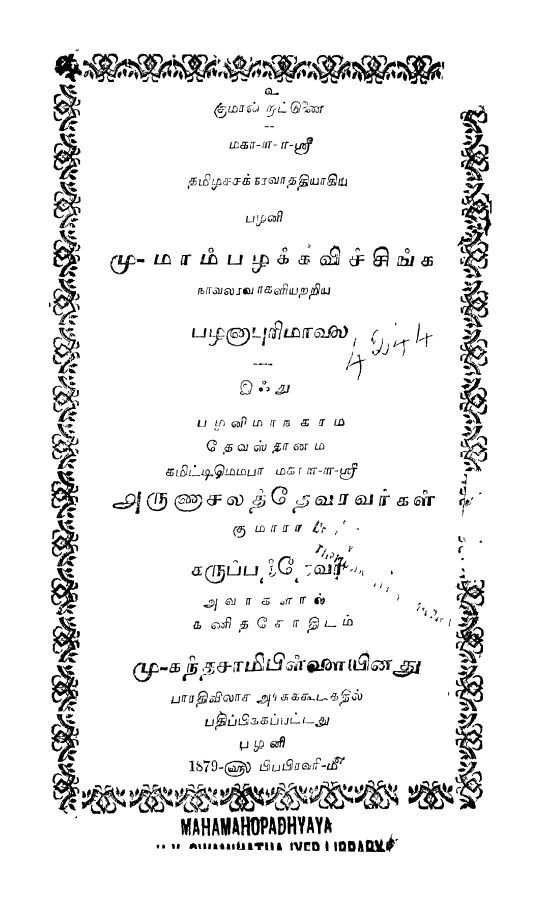 உ
குமரன் துணை
மகா-ள-ள-ஸ்ரீ
தமிழ்ச்சக்கரவர்த்தியாகிய
பழனி
மு-மாம்பழக்கவிச்சிங்க
நாவலரவர்களியற்றிய
பழனாபுரிமாலை
4244
இஃது
பழனிமாநகரம்
தேவஸ்தானம்
கமிட்டிமெம்பர் மகா-ள-ள-ஸ்ரீ
அருணாசலத்தேவரவர்கள்
குமாரர்
கருப்பத்தேவர்
அவர்களால்
கணிதசோதிடம்
மு-கந்தசாமிபிள்ளையினது
பாரதிவிலாச அச்சுக்கூடத்தில்
பதிப்பிக்கப்பட்டது
பழனி
1879-௵ பிப்பிரவரி-மீ
MAHAMAHOPADHYAYA
U.V. SWAMINATHA IYER LIBRARY